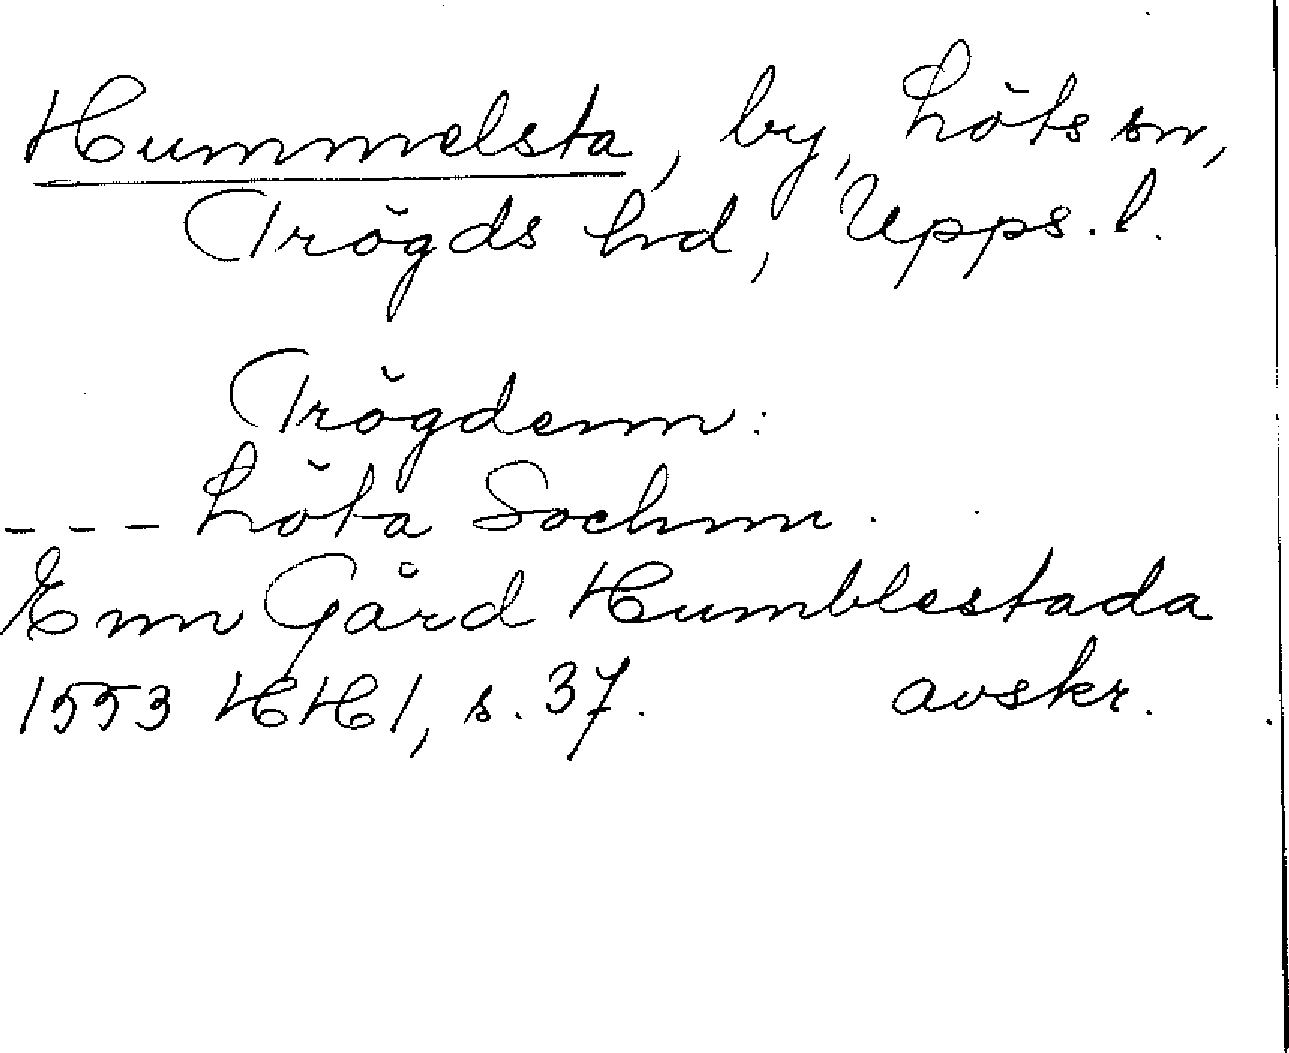 Hummelsta, by, Löts sn,
Trögds hd, Upps. l.
Trögdenn:
--- Löta Sochnn.
Enn Gård Humblestada
1553 HH 1, s. 37. avskr.